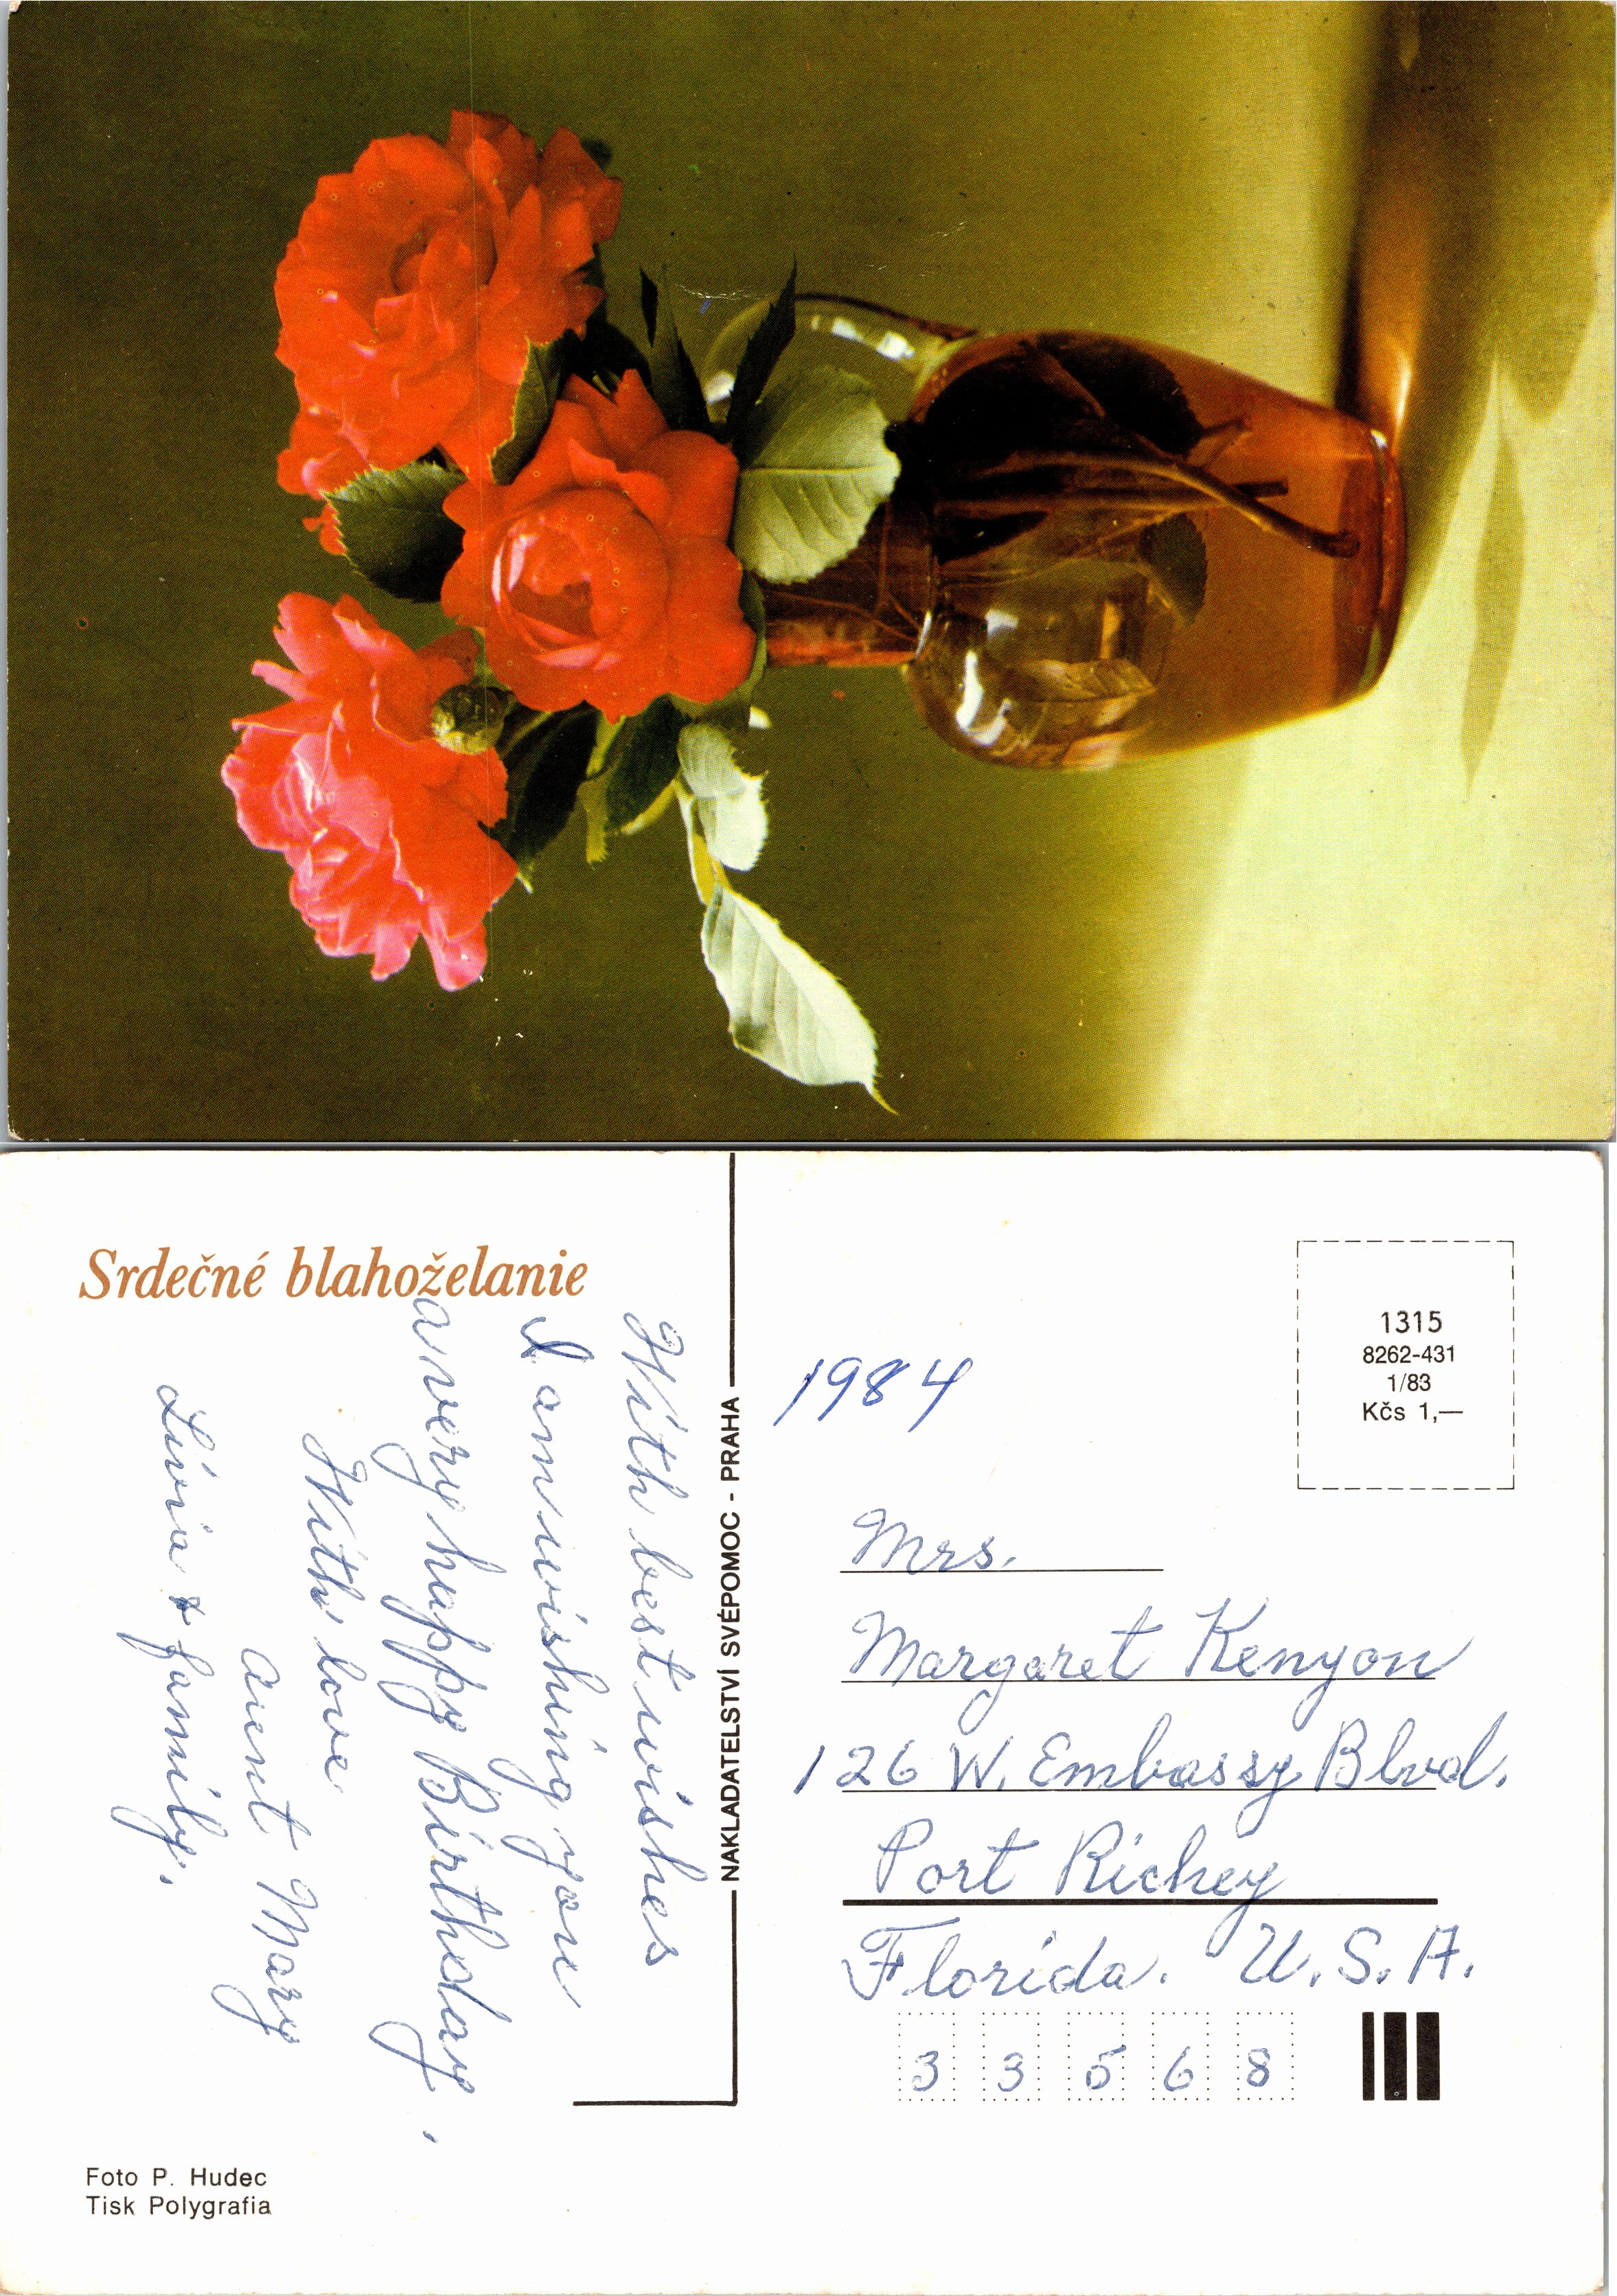 Srdečné blahoželanie
With best wishes
I am wishing you
a very happy Birthday,
With love
aunt Mary
Lívia + family.
Foto P. Hudec
Tisk Polygrafia
NAKLADATELSTVÍ SVÉPOMOC - PRAHA
1315
8262-431
1/83
Kčs 1,—
1984
Mrs.
Margaret Kenyon
126 W. Embassy Blvd.
Port Richey
Florida. U.S.A.
3 3 5 6 8